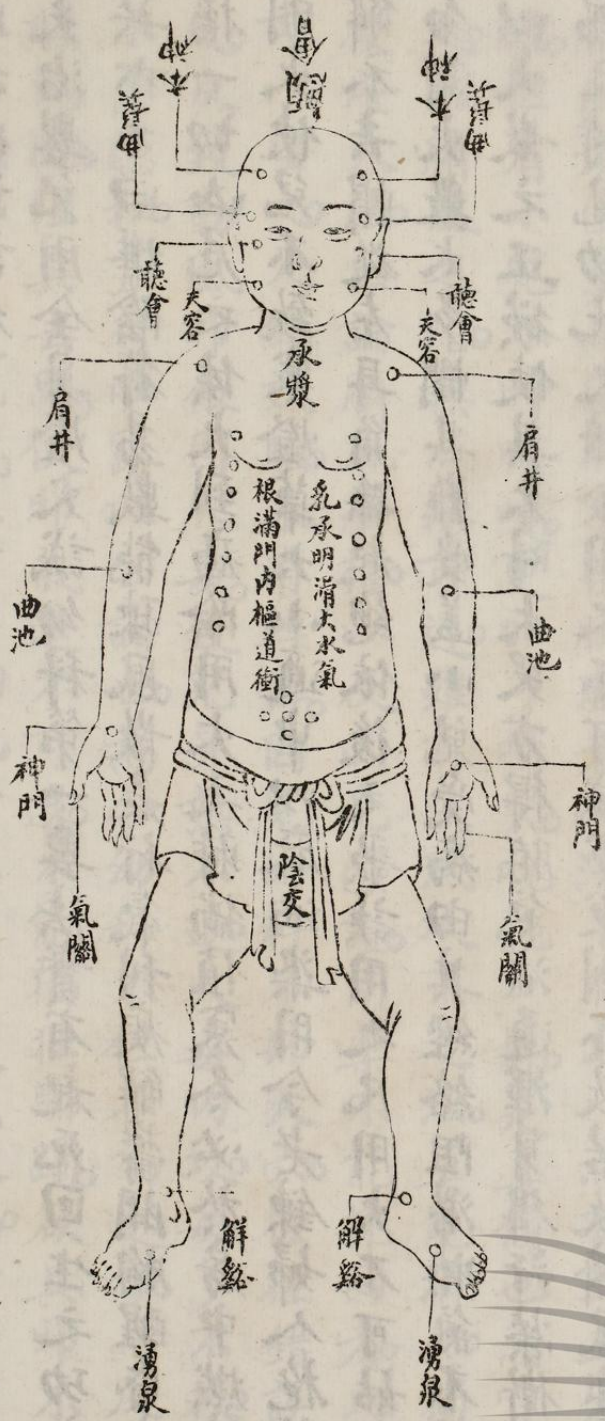 本神
顖會
本神
曲鬢
曲鬢
聽會
聽會
天容
天容
承漿
肩井
肩井
乳承明滑大水氣
根滿門内樞道衝
曲池
曲池
神門
神門
氣關
氣關
陰交
解谿
解谿
湧泉
湧泉